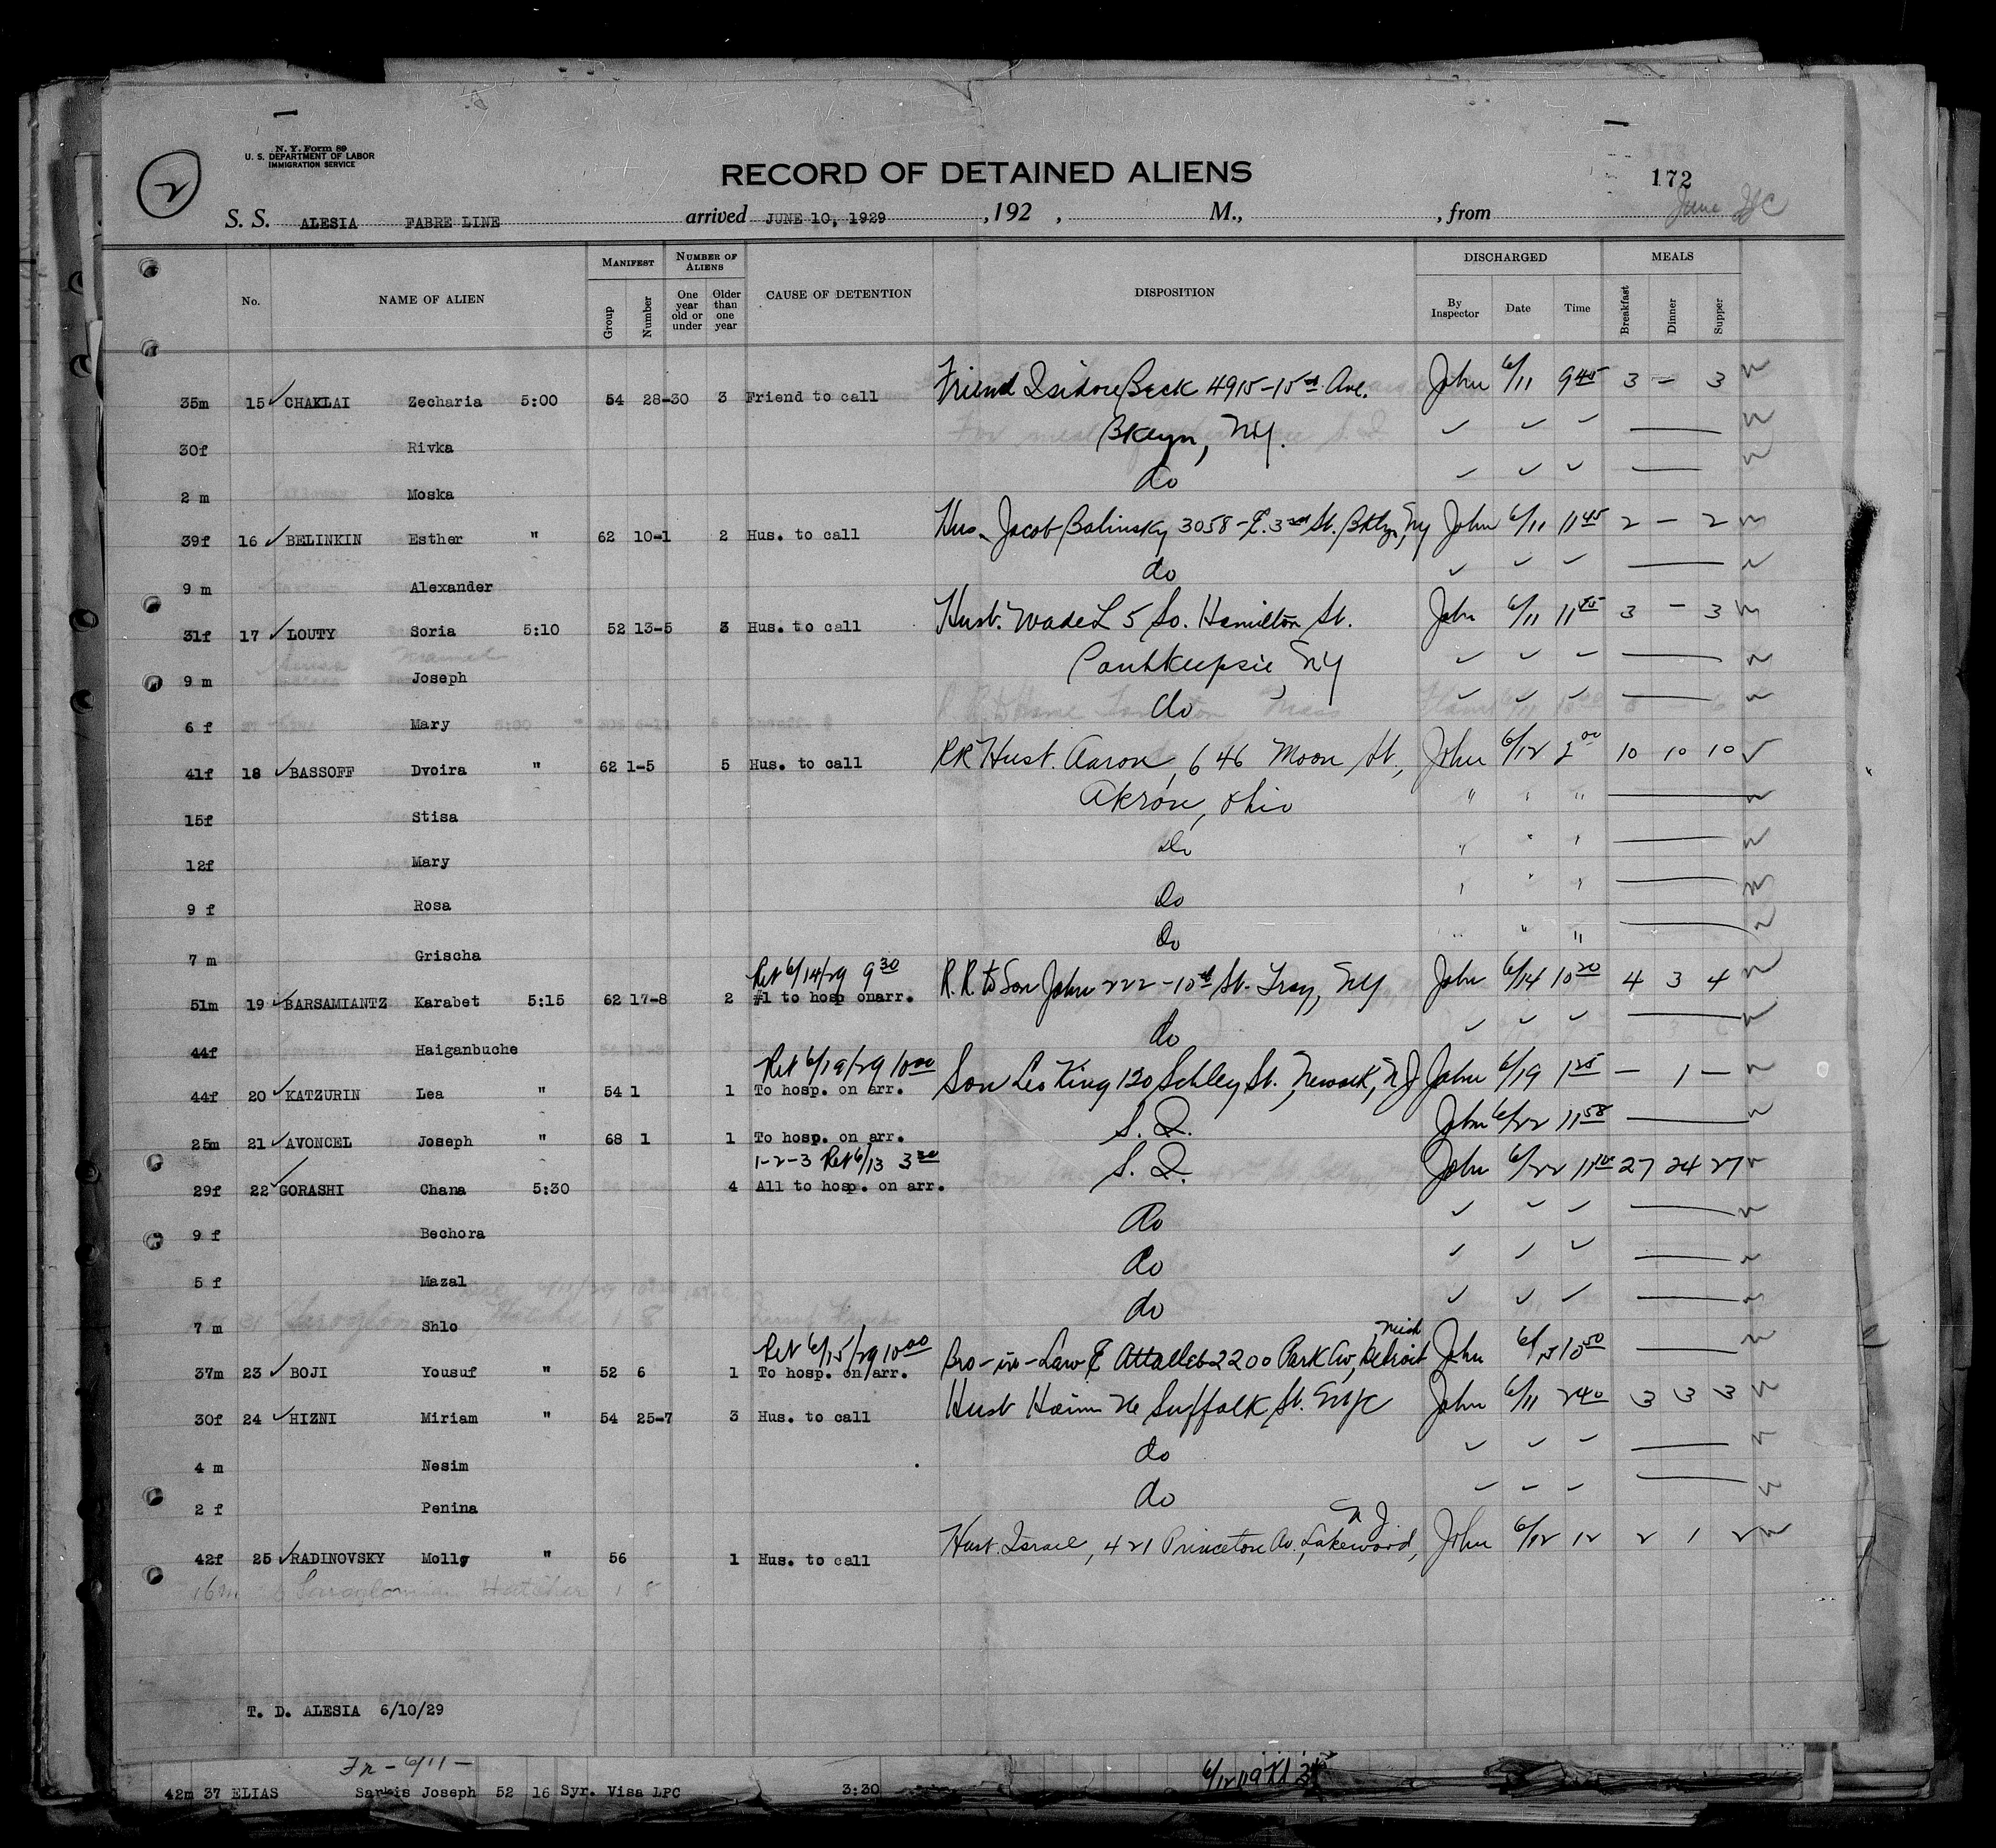 2
N. Y. Form 89
U. S. DEPARTMENT OF LABOR
IMMIGRATION SERVICE
RECORD OF DETAINED ALIENS
172
S. S. ALESIA FABRE LINE arrived JUNE 10, 1929, 192 , M., , from June
No. NAME OF ALIEN MANIFEST Group Number NUMBER OF ALIENS One year old or under Older than one year CAUSE OF DETENTION DISPOSITION DISCHARGED By Inspector Date Time MEALS Breakfast Dinner Supper
35m 15 ✓ CHAKLAI Zecharia 5:00 54 28-30 3 Friend to call Friend Isidore Beck 4915-15th Ave. John 6/11 9 45 3 — 3
30f Rivka Bklyn, NY. ✓ ✓ ✓ —
2 m Moska do ✓ ✓ ✓ —
39f 16 ✓ BELINKIN Esther " 62 10-1 2 Hus. to call Hus. Jacob Balinsky 3058-E. 3rd St. Bklyn, Ny John 6/11 11 45 2 — 2
9 m Alexander do ✓ ✓ ✓ —
31f 17 ✓ LOUTY Soria 5:10 52 13-5 3 Hus. to call Husb. Wadel 5 So. Hamilton St. John 6/11 11 45 3 — 3
9 m Joseph Pouhkeepsie, NY ✓ ✓ ✓ —
6 f Mary do ✓ ✓ ✓ —
41f 18 ✓ BASSOFF Dvoira " 62 1-5 5 Hus. to call RR Hust. Aaron, 646 Moon St., John 6/12 2 00 10 10 10 ✓
15f Stisa Akron, Ohio " " " —
12f Mary do " " " —
9 f Rosa do " " " —
7 m Grischa do " " " —
Ret 6/14/29 9 30
51m 19 ✓ BARSAMIANTZ Karabet 5:15 62 17-8 2 #1 to hosp onarr. R.R. to Son John 222-10th St. Troy, NY John 6/14 10 20 4 3 4
44f Haiganbuche do ✓ ✓ ✓ —
Ret 6/19/29 10 00
44f 20 ✓ KATZURIN Lea " 54 1 1 To hosp. on arr. Son Leo King 120 Schley St., Newark, N J John 6/19 1 25 — 1 —
25m 21 ✓ AVONCEL Joseph " 68 1 1 To hosp. on arr. S. I. John 6/22 11 58 —
1-2-3 Ret 6/13 3 30
29f 22 ✓ GORASHI Chana 5:30 4 All to hosp. on arr. S. I. John 6/22 27 24 27
9 f Bechora do ✓ ✓ ✓ —
5 f Mazal do ✓ ✓ ✓ —
7 m Shlo do ✓ ✓ ✓ —
Ret 6/15/29 10 00
37m 23 ✓ BOJI Yousuf " 52 6 1 To hosp. on arr. Bro-in-Law E Attalleb 2200 Park Av, Detroit Mich John 6/15 10 50 —
30f 24 ✓ HIZNI Miriam " 54 25-7 3 Hus. to call Husb Haim 26 Suffolk St. NYC John 6/11 2 40 3 3 3
4 m Nesim do ✓ ✓ ✓ —
2 f Penina do ✓ ✓ ✓ —
42f 25 ✓ RADINOVSKY Molly " 56 1 Hus. to call Hust. Israel, 421 Princeton Av., Lakewood, N J John 6/12 12 2 1 2
T. D. ALESIA 6/10/29
Fr - 6/11 -
42m 37 ELIAS Sarkis Joseph 52 16 Syr. Visa LPC 3:30